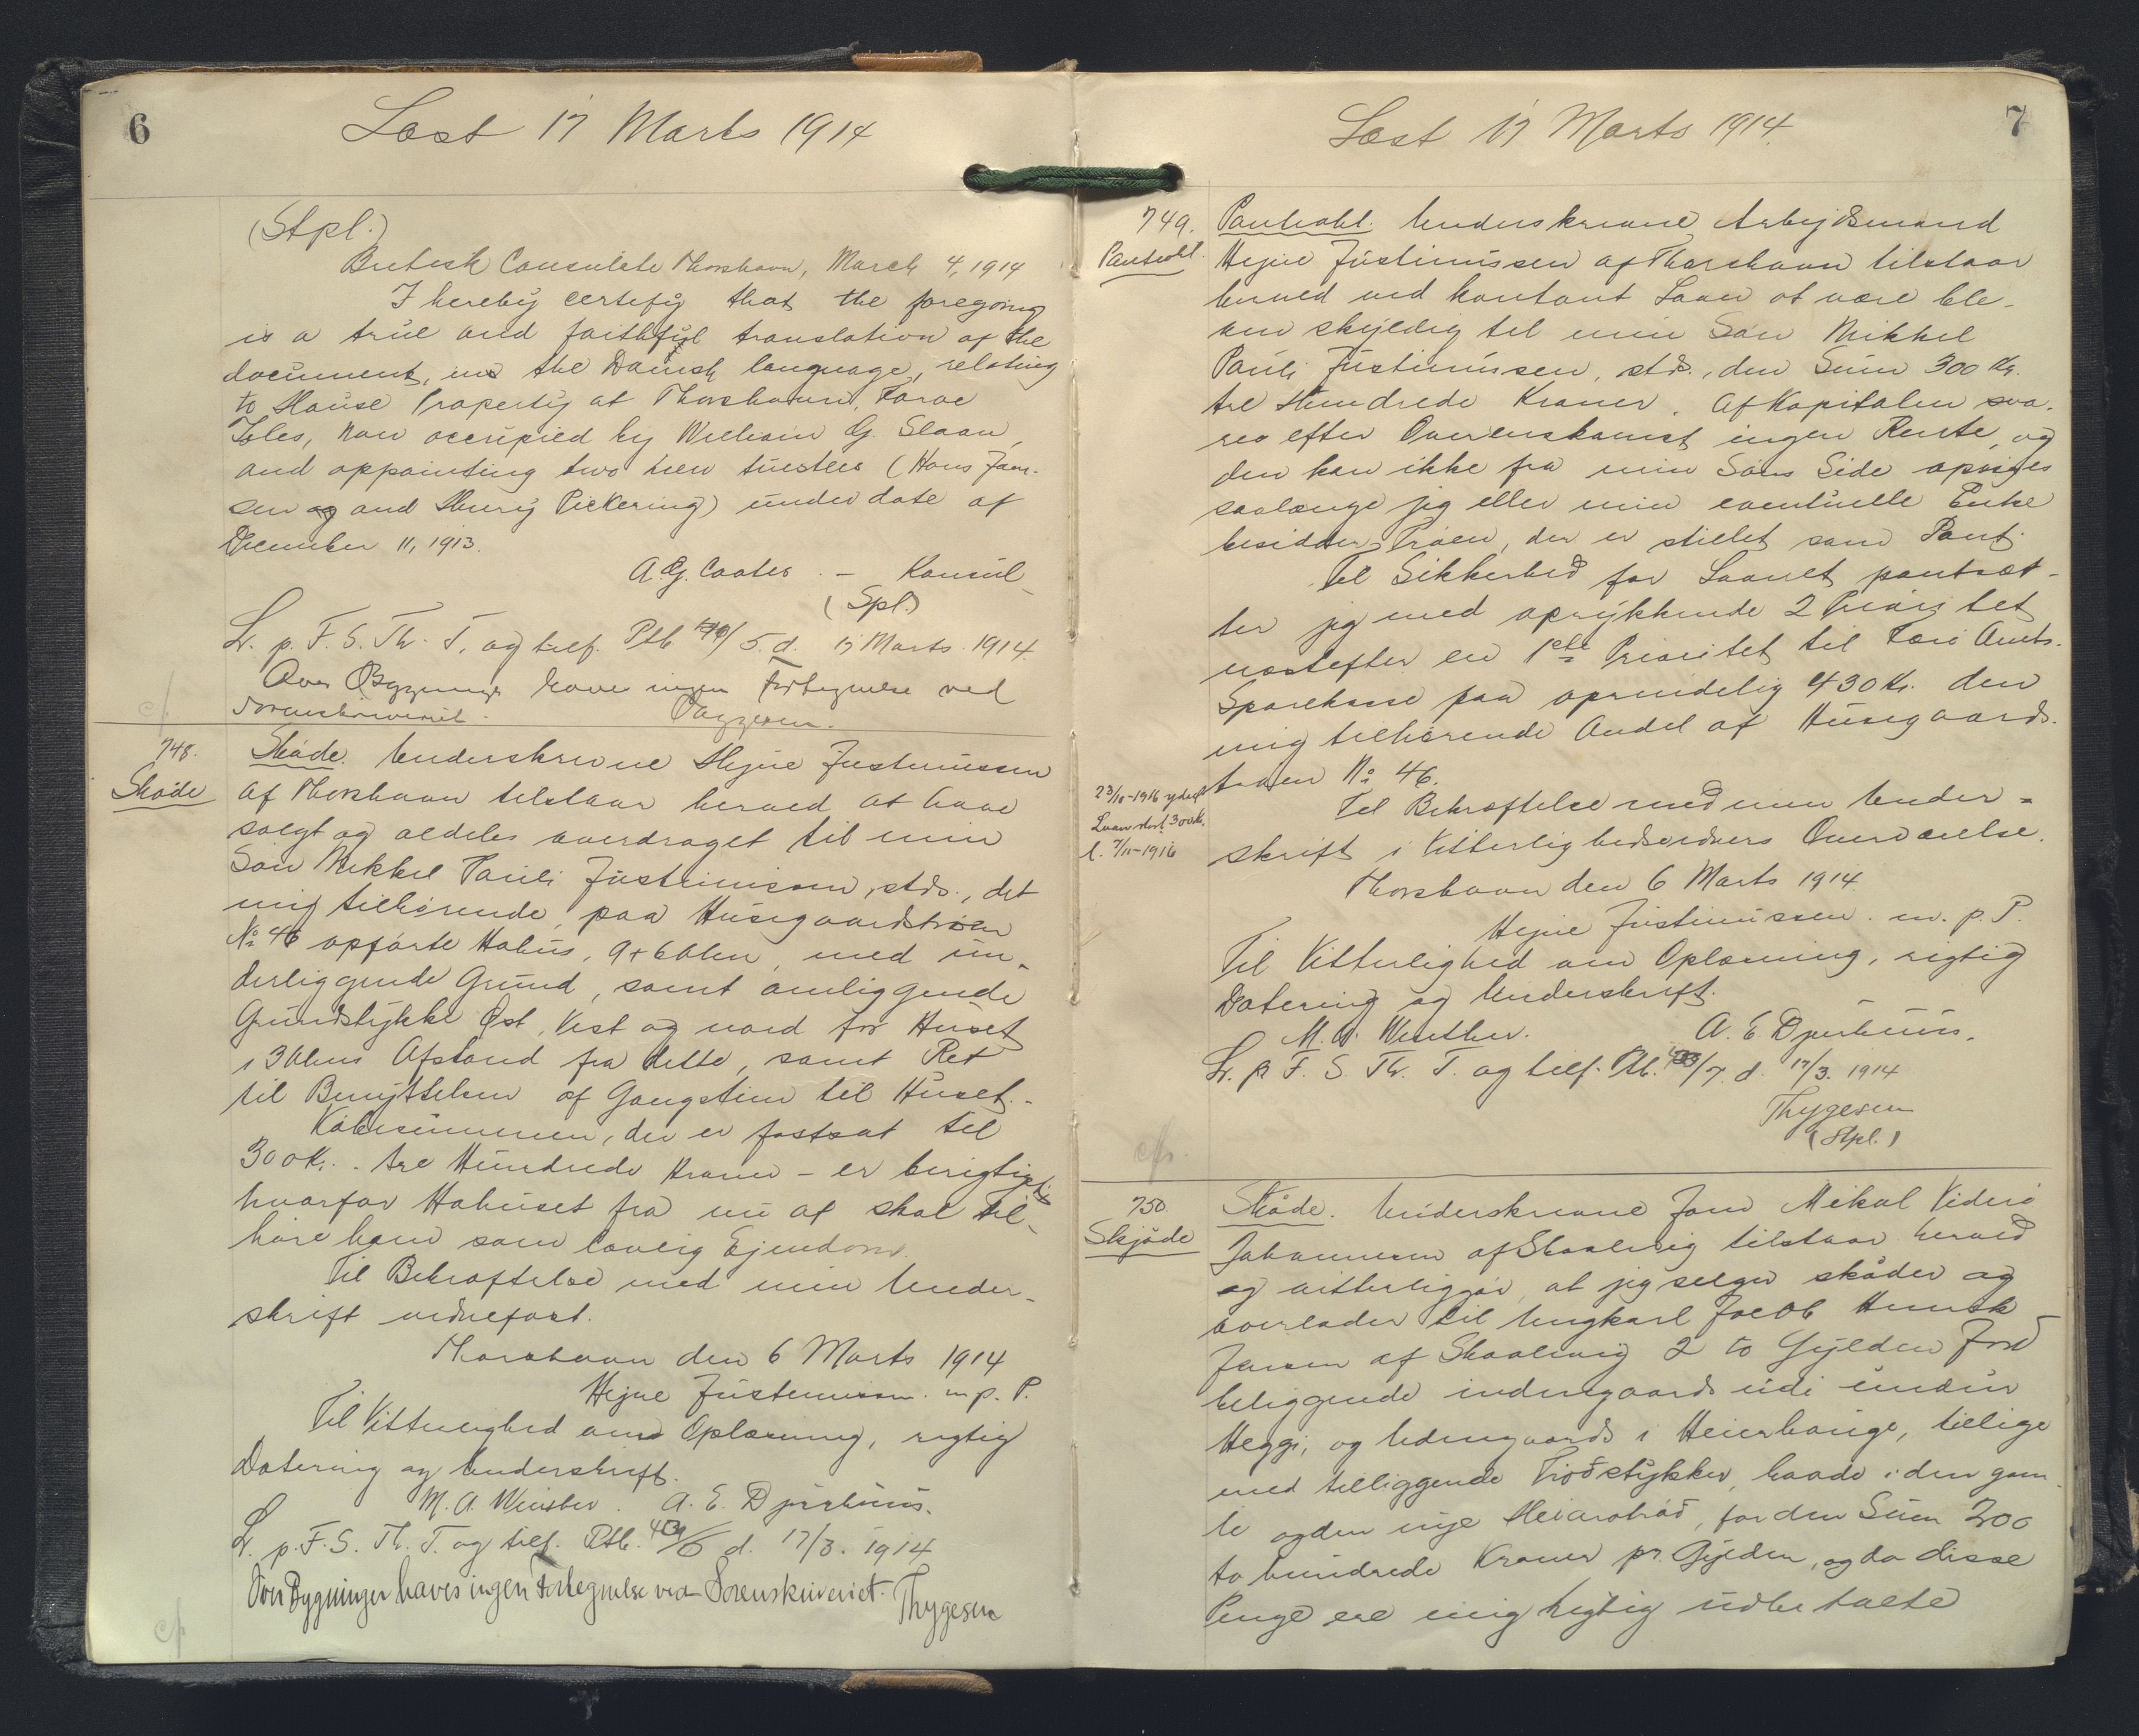 6
Læst 17 Marts 1914
(Stpl.)
British Consulate Thorshavn, March 4, 1914
I hereby certify that the foregoing
is a true and faithful translation of the
document, in the Danish language, relating
to House Property at Thorshavn, Faroe
Isles, now occupied by William G. Sloan,
and appointing two new trustees (Hans Jen-
sen og and Henry Pickering) under date of
December 11, 1913.
A. G. Coates. - Konsul
(Spl.)
L. p. F. S. Th. T. og tilf. Ptb /5. d. 17 Marts 1914.
Over Bygninger haves ingen Fortegnelse ved
Sorenskriveriet. Thygesen.
748.
Skøde
Skøde. Underskrevne Hejne Justinussen
af Thorshavn tilstaar herved at have
solgt og aldeles overdraget til min
Søn Mikkel Pauli Justinussen, stds., det
mig tilhørende, paa Husegaardstrøen
No 46 opførte Hohus, 9 + 6 Alen, med un-
derliggende Grund, samt omliggende
Grundstykke Øst, Vest og nord for Huset
i 3 Alens Afstand fra dette, samt Ret
til Benyttelsen af Gangstien til Huset.-
Købesummen, der er fastsat til
300 Kr. - tre Hundrede Kroner - er berigtiget,
hvorfor Hohuset fra nu af skal til-
høre ham som lovlig Ejendom.
Til Bekræftelse med min Under-
skrift vidnefast.
Thorshavn den 6 Marts 1914
Hejne Justinussen. m. p. P.
Til Vitterlighed om Oplæsning, rigtig
Datering og Underskrift.
M. A. Winther. A. E. Djurhuus.
L. p. F. S. Th. T. og tilf. Ptb. /6 d. 17/3. 1914
Over Bygninger haves ingen Fortegnelse ved Sorenskriveriet. Thygesen
7
Læst 17 Marts 1914.
749.
Panteobl.
Panteobl. Underskrevne Arbejdsmand
Hejne Justinussen af Thorshavn tilstaar
herved ved kontant Laan at være ble-
ven skyldig til min Søn Mikkel
Pauli Justinussen, stds., den Sum 300 Kr.
tre Hundrede Kroner. Af Kapitalen sva-
res efter Overenskomst ingen Rente, og
den kan ikke fra min Søns Side opsiges
saalænge jeg eller min eventuelle Enke
besidder Trøen, der er stillet som Pant.
Til Sikkerhed for Laanet pantsæt-
ter jeg med oprykkende 2 Prioritet
næstefter en 1ste Prioritet til Færø Amts
Sparekasse paa oprindelig 430 Kr. den
mig tilhørende Andel af Husegaards-
trøen No 46.
23/10-1916 ydet
Laan stort 300 Kr.
l. 7/11-1916
Til Bekræftelse med min Under-
skrift i Vitterlighedsvidners Overværelse.
Thorshavn den 6 Marts 1914.
Hejne Justinussen. m. p. P.
Til Vitterlighed om Oplæsning, rigtig
Datering og Underskrift.
M. A. Winther. A. E Djurhuus.
L. p. F. S. Th. T. og tilf. Ptb. /7. d. 17/3. 1914
Thygesen
(Stpl.)
750.
Skjøde
Skøde. Underskrevne Jens Mikal Viderø
Johannesen af Skaalevig tilstaar herved
og vitterliggør, at jeg selger skøder og
overlader til Ungkarl Jacob Hensk
Jensen af Skaalevig 2 to Gylden Jord
beliggende indengaards udi undur
Heggi, og Udengaards i Heierhauge, tillige
med tilliggende Trødstykker, baade i den gam
le og den nye Heiarstrød, for den Sum 200
to hundrede Kroner pr. Gylden, og da disse
Penge ere mig rigtig udbetalte